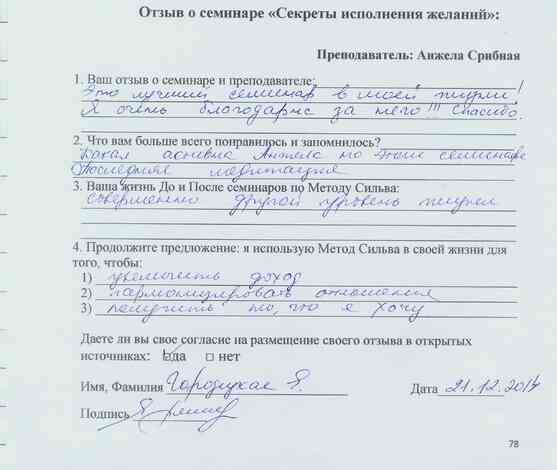 Отзыв о семинаре «Секреты исполнения желаний»:
Преподаватель: Анжела Срибная
1. Ваш отзыв о семинаре и преподавателе:
Это лучший семинар в моей жизни!
Я очень благодарна за него!!! Спасибо.
2. Что вам больше всего понравилось и запомнилось?
Какая Анжела на этом семинаре
Последняя медитация
3. Ваша жизнь До и После семинаров по Методу Сильва:
совершенно другой уровень жизни
4. Продолжите предложение: я использую Метод Сильва в своей жизни для
того, чтобы:
1) увеличить доход
2) гармонизировать отношения
3) получить то, что я хочу
Даете ли вы свое согласие на размещение своего отзыва в открытых
источниках: ☑да □ нет
Имя, Фамилия
Дата 21.12.2014
Подпись
78